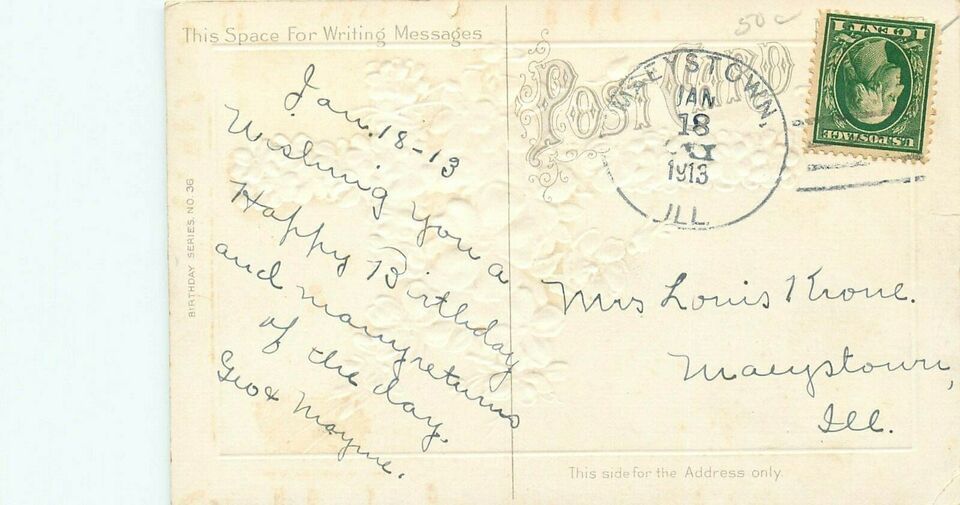 This Space For Writing Messages
Jan. 18-13
Wishing you a
Happy Birthday
and many returns
of the day.
Geo & Mayme.
BIRTHDAY SERIES. NO. 36
50c
POST CARD
MAEYSTOWN,
JAN
18
1913
ILL.
1 CENT 1
U.S. POSTAGE
Mrs Louis Krone.
Maeystown,
Ill.
This side for the Address only.